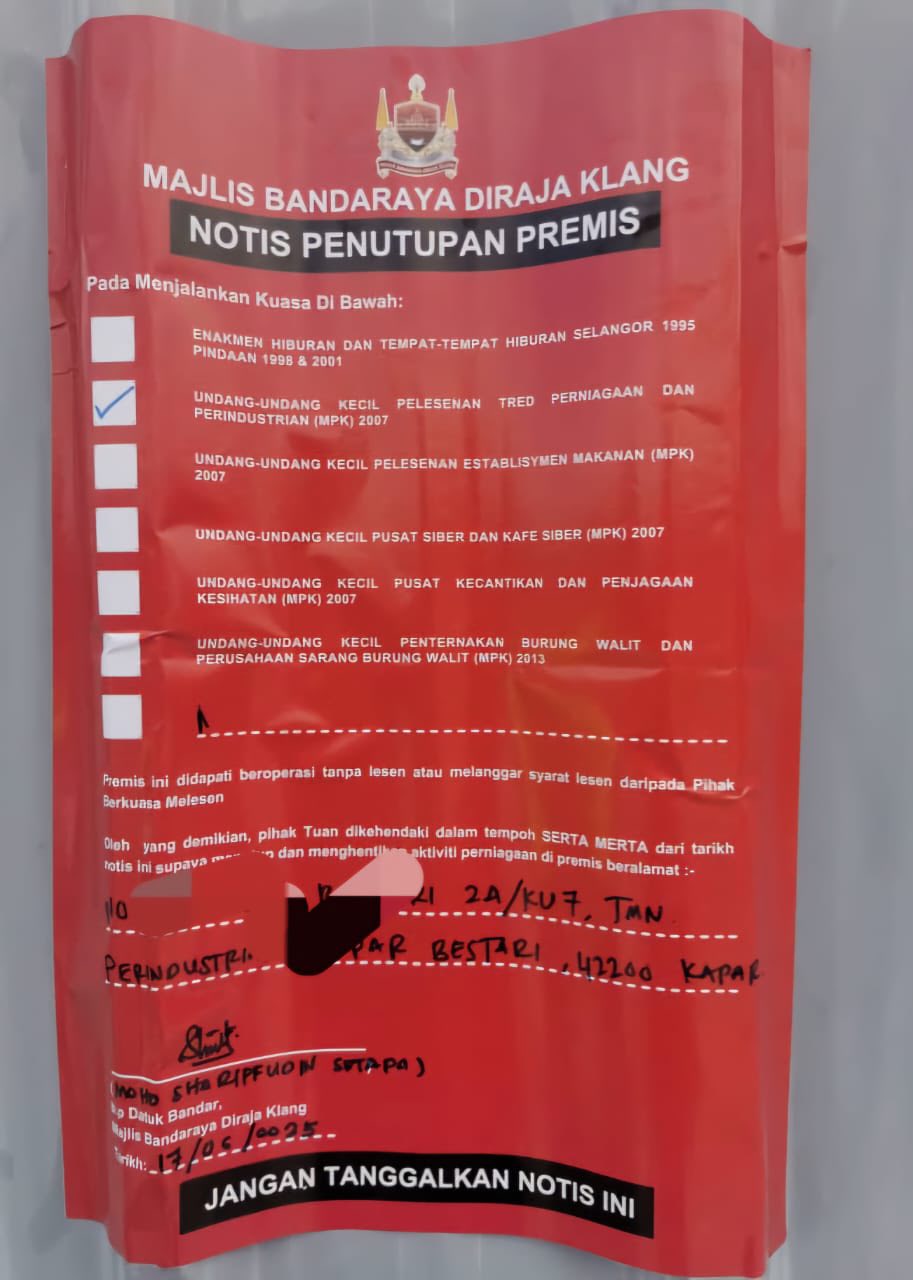 MAJLIS BANDARAYA DIRAJA KLANG
NOTIS PENUTUPAN PREMIS
Pada Menjalankan Kuasa Di Bawah:
ENAKMEN HIBURAN DAN TEMPAT-TEMPAT HIBURAN SELANGOR 1995
PINDAAN 1998 & 2001
UNDANG-UNDANG KECIL PELESENAN TRED PERNIAGAAN DAN
PERINDUSTRIAN (MPK) 2007
UNDANG-UNDANG KECIL PELESENAN ESTABLISYMEN MAKANAN (MPK)
2007
UNDANG-UNDANG KECIL PUSAT SIBER DAN KAFE SIBER (MPK) 2007
UNDANG-UNDANG KECIL PUSAT KECANTIKAN DAN PENJAGAAN
KESIHATAN (MPK) 2007
UNDANG-UNDANG KECIL PENTERNAKAN BURUNG WALIT DAN
PERUSAHAAN SARANG BURUNG WALIT (MPK) 2013
Premis ini didapati beroperasi tanpa lesen atau melanggar syarat lesen daripada Pihak
Berkuasa Melesen
Oleh yang demikian, pihak Tuan dikehendaki dalam tempoh SERTA MERTA dari tarikh
notis ini supaya dan menghentikan aktiviti perniagaan di premis beralamat :-
NO 2A/KU7, TMN.
PERINDUSTRI. BESTARI, 42200 KAPAR
(MOHD SHARIFFUDIN SETAPA)
Datuk Bandar,
Majlis Bandaraya Diraja Klang
Tarikh: 17/06/
JANGAN TANGGALKAN NOTIS INI